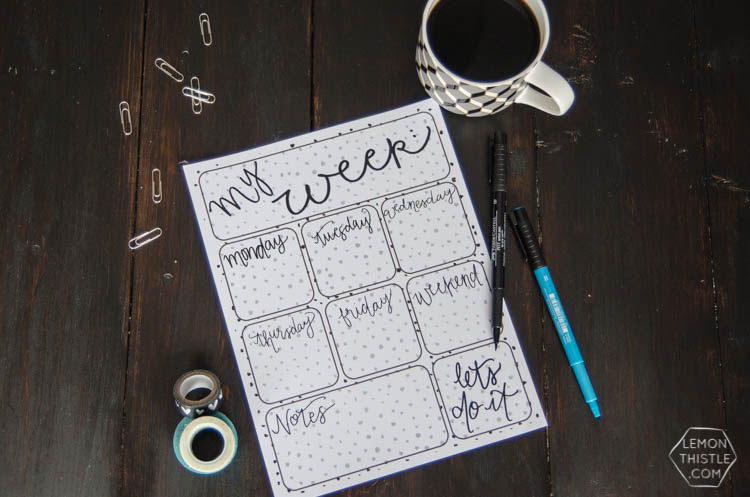 my week:
monday
tuesday
wednesday
thursday
friday
weekend
Notes
lets
do it
LEMON
THISTLE
.COM